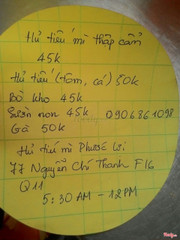 Hủ tiếu mì thập cẩm
45k
Hủ tiếu (tôm, cá) 50k
Bò kho 45k
Sườn non 45k 0904861098
Gà 50k
Hủ tiếu mì Phước
77 Nguyễn Chí Thanh F16
Q11
5:30 AM - 12PM